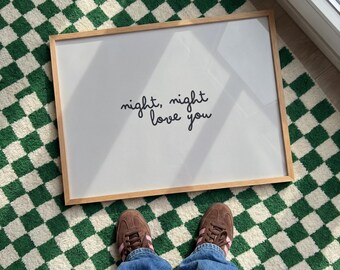 night, night
love you